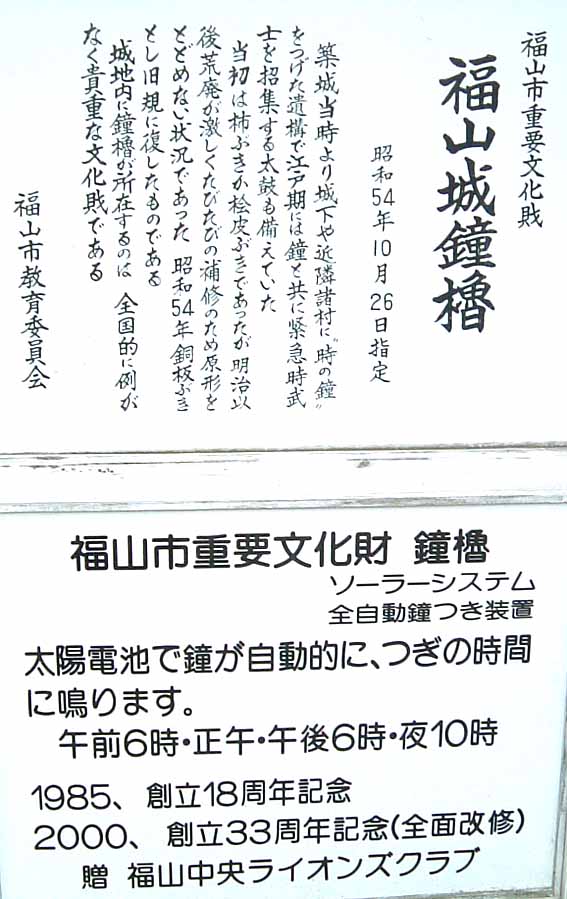 福山市重要文化財
福山城鐘櫓
昭和54年10月26日指定
築城当時より城下や近隣諸村に〝時の鐘〟
をつげた遺構で江戸期には鐘と共に緊急時武
士を招集する太鼓も備えていた
当初は柿ぶきか桧皮ぶきであったが明治以
後荒廃が激しくたびたびの補修のため原形を
とどめない状況であった 昭和54年銅板ぶき
とし旧規に復したものである
城地内に鐘櫓が所在するのは 全国的に例が
なく貴重な文化財である
福山市教育委員会
福山市重要文化財 鐘櫓
ソーラーシステム
全自動鐘つき装置
太陽電池で鐘が自動的に、つぎの時間
に鳴ります。
午前6時・正午・午後6時・夜10時
1985、創立18周年記念
2000、創立33周年記念(全面改修)
贈 福山中央ライオンズクラブ